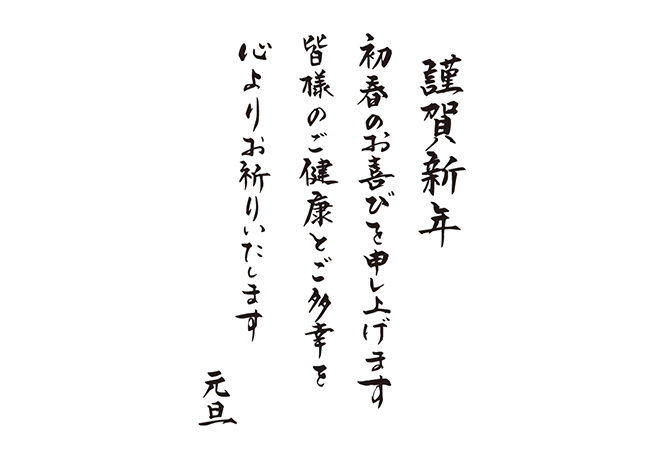 謹賀新年
初春のお喜びを申し上げます
皆様のご健康とご多幸を
心よりお祈りいたします
元旦